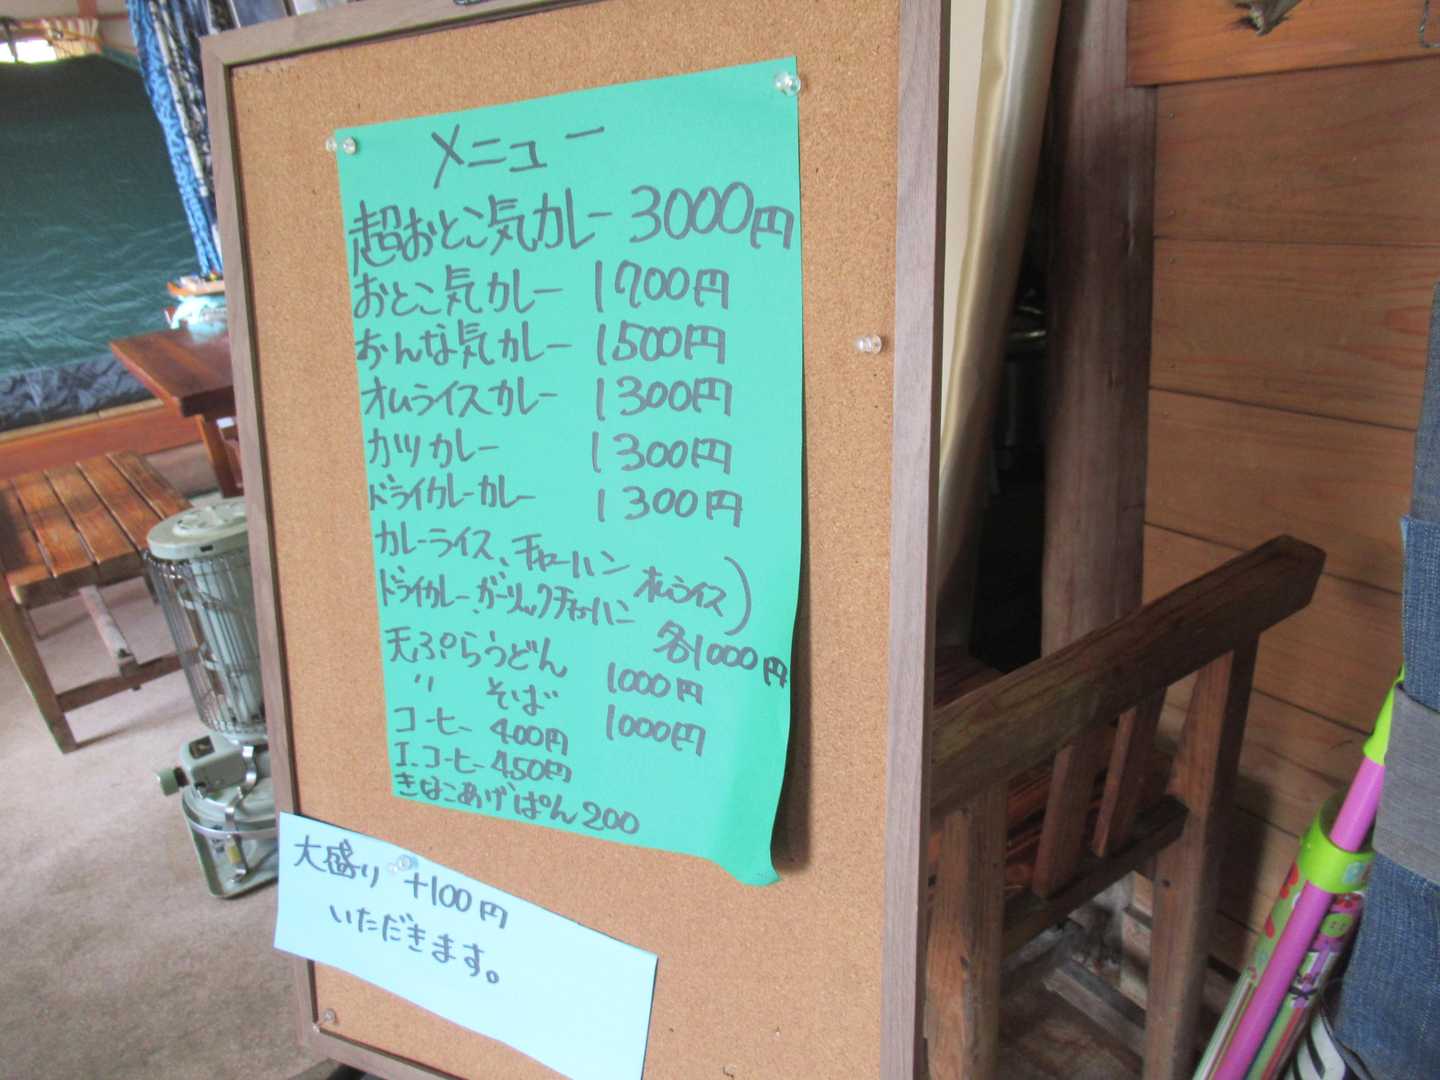 メニュー
超おとこ気カレー 3000円
おとこ気カレー 1700円
おんな気カレー 1500円
オムライスカレー 1300円
カツカレー 1300円
ドライカレーカレー 1300円
カレーライス、チャーハン オムライス)
ドライカレー、ガーリックチャーハン
各1000円
天ぷらうどん 1000円
〃 そば 1000円
コーヒー 400円
I.コーヒー 450円
きなこあげぱん 200
大盛り +100円
いただきます。